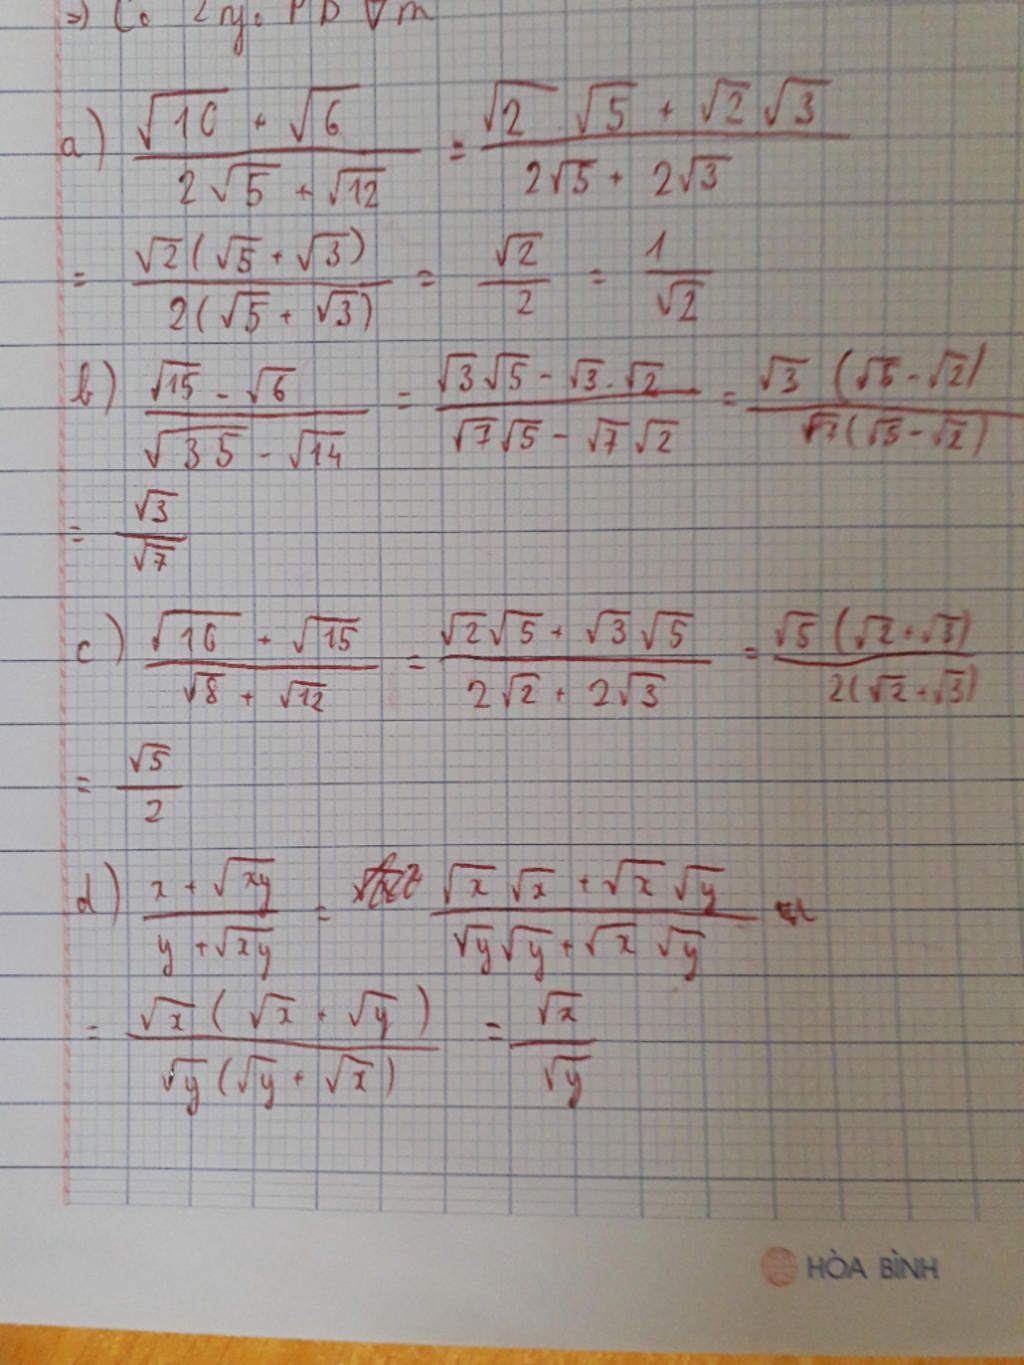 a) (√10 + √6)/(2√5 + √12) = (√2 . √5 + √2 √3)/(2√5 + 2√3)
= (√2(√5 + √3))/(2(√5 + √3)) = √2/2 = 1/√2
b) (√15 - √6)/(√35 - √14) = (√3 √5 - √3 . √2)/(√7 √5 - √7 √2) = (√3 (√5 - √2))/(√7 (√5 - √2))
= √3/√7
c) (√10 + √15)/(√8 + √12) = (√2 √5 + √3 √5)/(2√2 + 2√3) = (√5 (√2 + √3))/(2(√2 + √3))
= √5/2
d) (x + √xy)/(y + √xy) = (√x √x + √x √y)/(√y √y + √x √y)
= (√x (√x + √y))/(√y (√y + √x)) = √x/√y
HÒA BÌNH